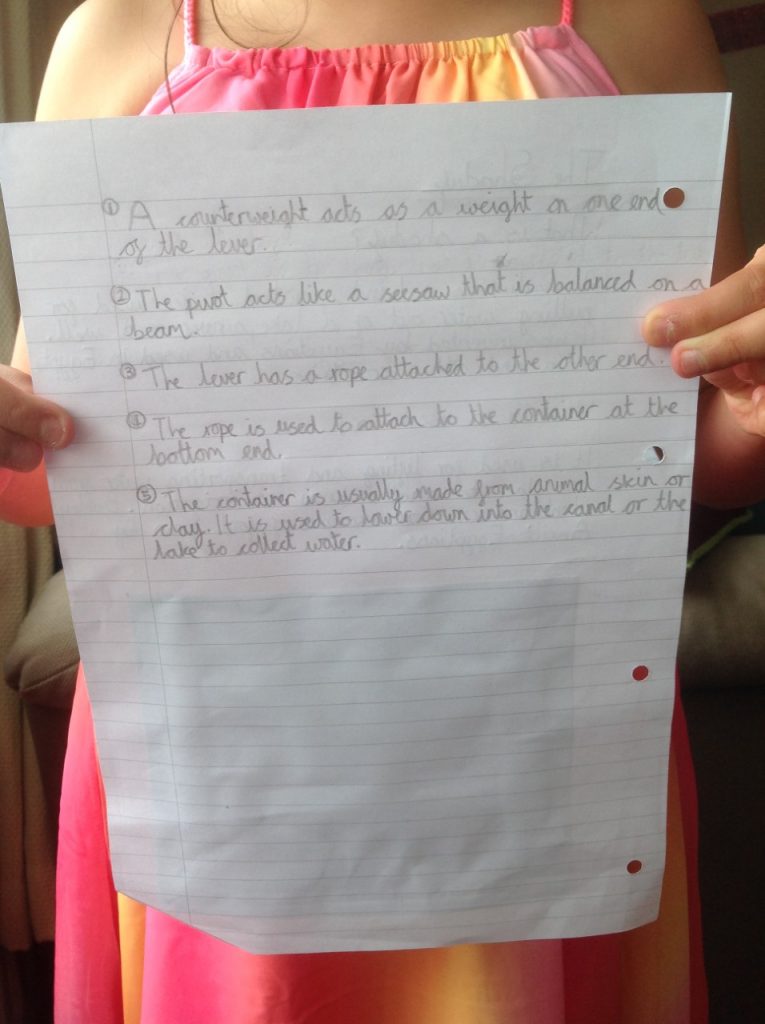 ① A counterweight acts as a weight on one end
of the lever.
② The pivot acts like a seesaw that is balanced on a
beam.
③ The lever has a rope attached to the other end.
④ The rope is used to attach to the container at the
bottom end.
⑤ The container is usually made from animal skin or
clay. It is used to lower down into the canal or the
lake to collect water.